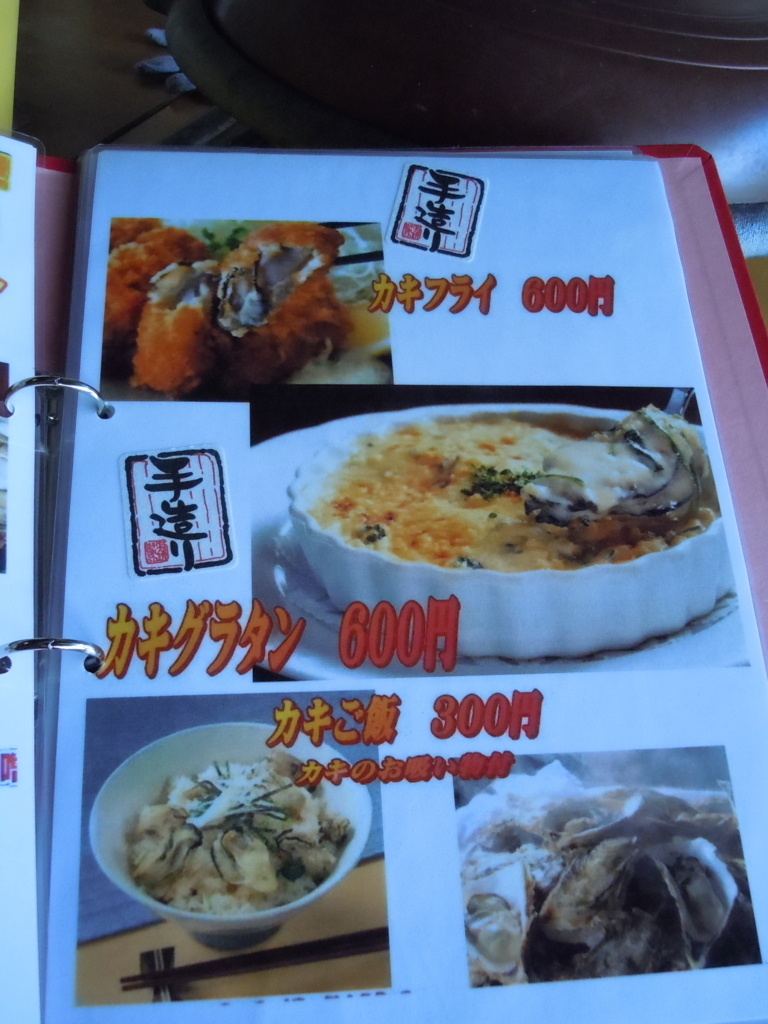 手造り
カキフライ 600円
手造り
カキグラタン 600円
カキご飯 300円
カキのお吸い物付